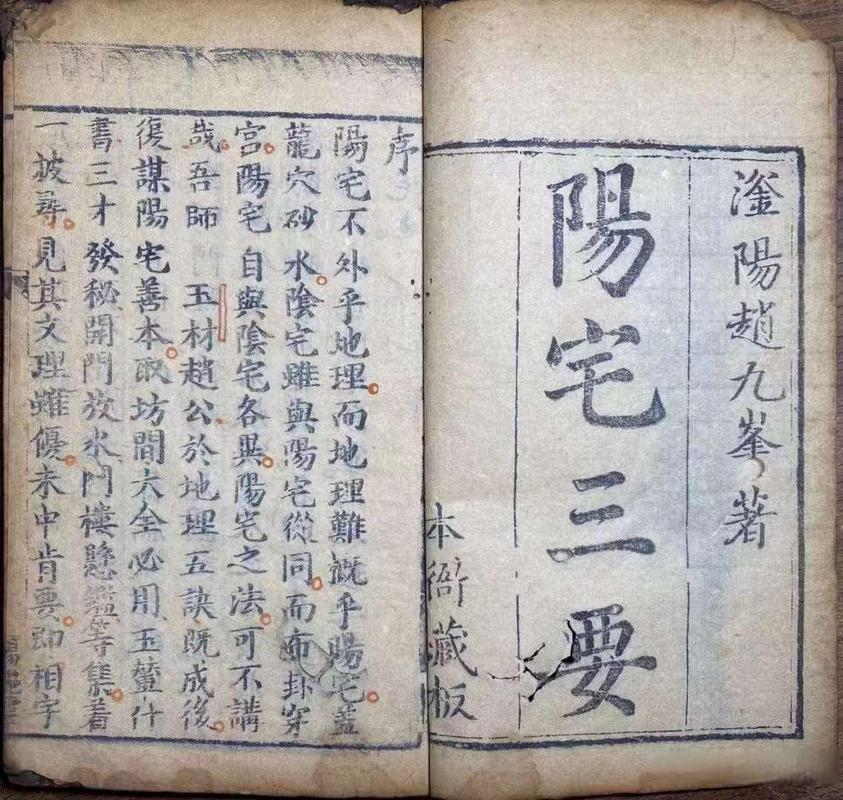 滏陽趙九峯著
陽宅三要
本衙藏板
序
陽宅不外乎地理而地理難概乎陽宅蓋
龍穴砂水陰宅雖與陽宅從同而布卦穿
宮陽宅自與陰宅各異陽宅之法可不講
哉吾師玉材趙公於地理五訣既成後
復謀陽宅善本取坊間大全必用玉輦什
書三才發秘開門放水門樓懸鑑等集着
一披尋見其文理雖優未中肯要即相宅